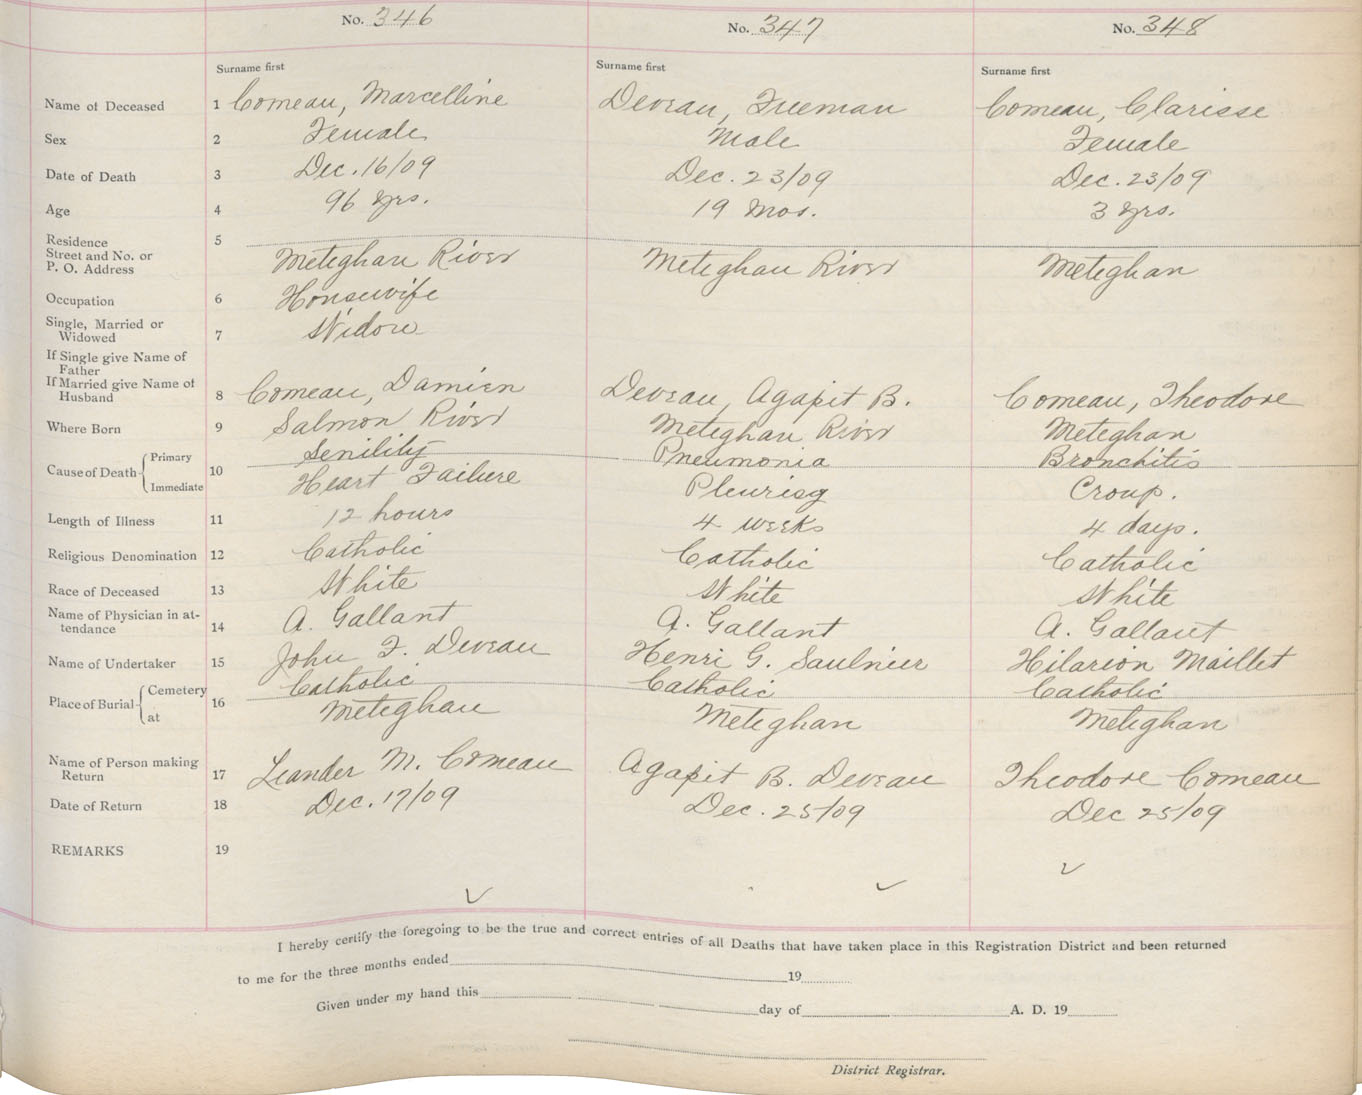 No. 346 No. 347 No. 348
Surname first Surname first Surname first
Name of Deceased 1 Comeau, Marcelline Deveau, Freeman Comeau, Clarisse
Sex 2 Female Male Female
Date of Death 3 Dec. 16/09 Dec. 23/09 Dec. 23/09
Age 4 96 yrs. 19 Mos. 3 yrs.
Residence 5
Street and No. or
P. O. Address Meteghan River Meteghan River Meteghan
Occupation 6 Housewife
Single, Married or
Widowed 7 Widow
If Single give Name of
Father
If Married give Name of
Husband 8 Comeau, Damien Deveau, Agapit B. Comeau, Theodore
Where Born 9 Salmon River Meteghan River Meteghan
Cause of Death Primary 10 Senility Pneumonia Bronchitis
Immediate Heart Failure Pleurisy Croup.
Length of Illness 11 12 hours 4 weeks 4 days.
Religious Denomination 12 Catholic Catholic Catholic
Race of Deceased 13 White White White
Name of Physician in at-
tendance 14 A. Gallant A. Gallant A. Gallant
Name of Undertaker 15 John F. Deveau Henri G. Saulnier Hilarion Maillet
Place of Burial Cemetery 16 Catholic Catholic Catholic
at Meteghan Meteghan Meteghan
Name of Person making
Return 17 Leander M. Comeau Agapit B. Deveau Theodore Comeau
Date of Return 18 Dec. 17/09 Dec. 25/09 Dec 25/09
REMARKS 19
I hereby certify the foregoing to be the true and correct entries of all Deaths that have taken place in this Registration District and been returned
to me for the three months ended 19
Given under my hand this day of A. D. 19
District Registrar.